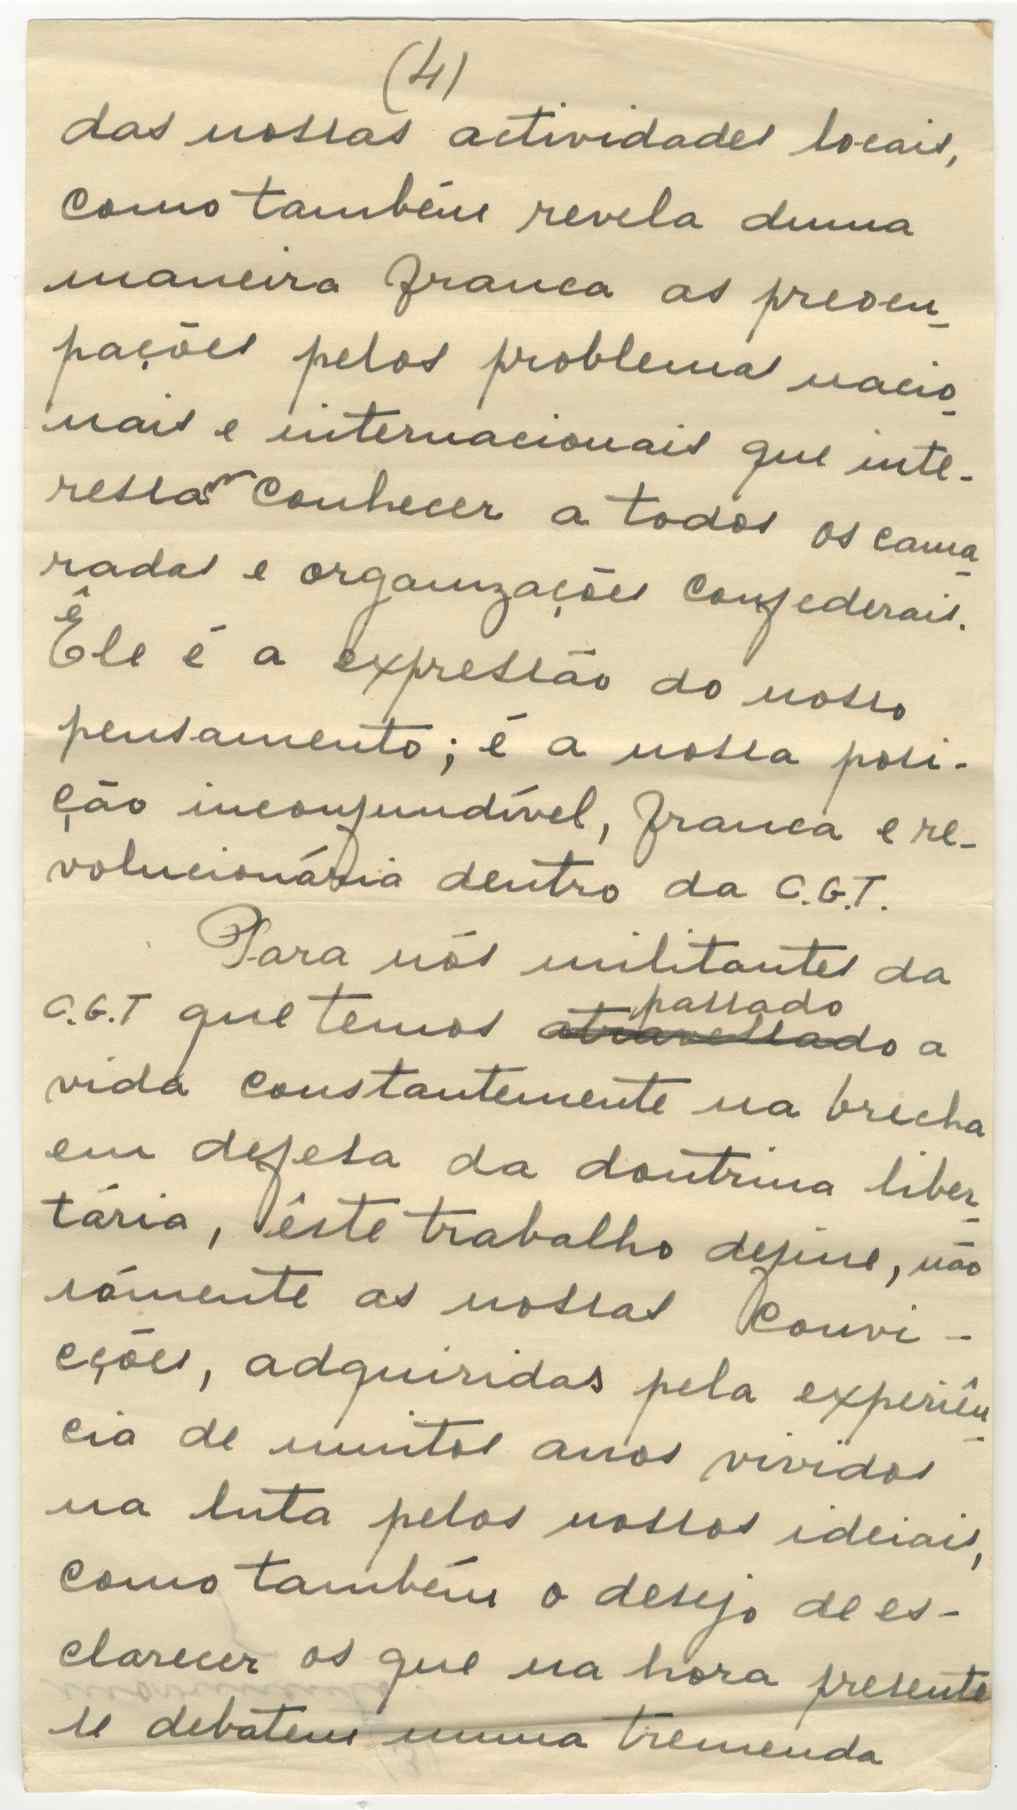 (4)
das nossas actividades locais,
como também revela duma
maneira franca as preocu-
pações pelos problemas nacio-
nais e internacionais que inte-
ressam conhecer a todos os cama-
radas e organizações confederais.
Êle é a expressão do nosso
pensamento; é a nossa posi-
ção inconfundível, franca e re-
volucionária dentro da C.G.T.
Para nós militantes da
passado
C.G.T que temos atravessado a
vida constantemente na brecha
em defesa da doutrina liber-
tária, êste trabalho define, não
sómente as nossas convi-
cções, adquiridas pela experiên-
cia de muitos anos vividos
na luta pelos nossos ideiais,
como também o desejo de es-
clarecer os que na hora presente
se debatem numa tremenda